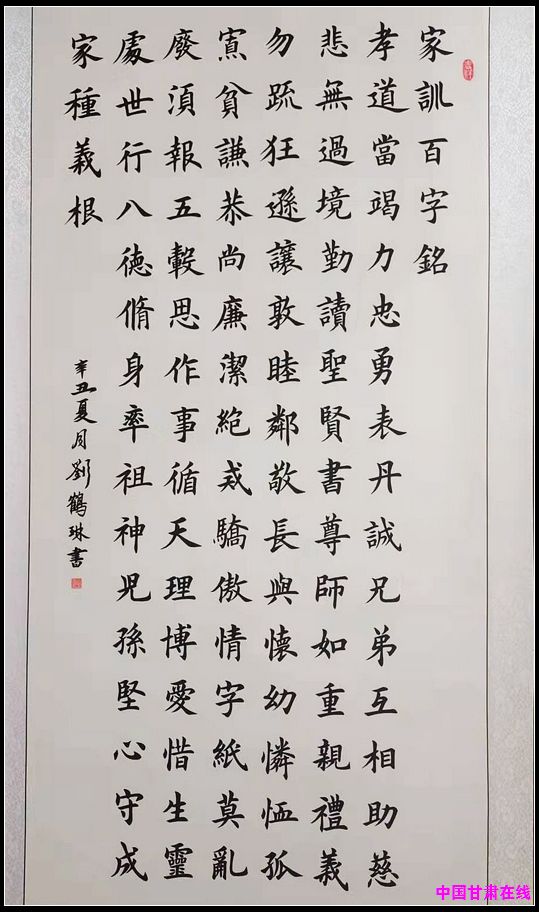 家訓百字銘
孝道當竭力忠勇表丹誠兄弟互相助慈
悲無過境勤讀聖賢書尊師如重親禮義
勿疏狂遜讓敦睦鄰敬長與懷幼憐恤孤
寡貧謙恭尚廉潔絕戒驕傲情字紙莫亂
廢須報五穀思作事循天理博愛惜生靈
處世行八德脩身率祖神児孫堅心守成
家種義根
辛丑夏月劉鶴琳書
中国甘肃在线